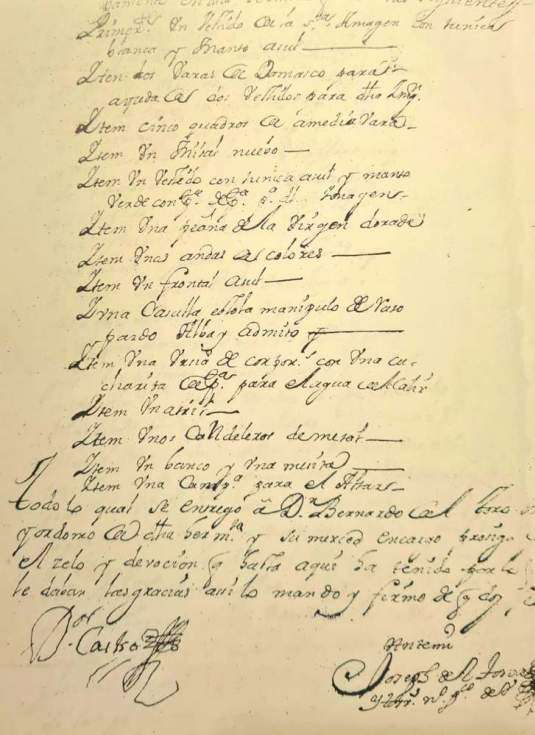 Primer.te Vn Vestido de la s.ta Ymagen con tunica
blanca y Manto asul
Ytem dos Varas de Damasco para
ayuda de dos Vestidos para dha Ymg.
Ytem cinco quadros de amedia vara
Ytem Vn Misal nuevo
Ytem Vn Vestido con tunica asul y manto
Verde con Ymagen
Ytem Vna peana de la Virgen dorada
Ytem Vnas andas de colores
Ytem Vn frontal asul
Y vna Casulla estola manipulo de Raso
pardo Alba y admito y
Ytem Vna de corpor.s con Vna cu-
charita de p.ta para el agua del Calix
Ytem Vn atril
Ytem Vnos Candeleros de metal
Ytem Vn banco y Vna mesita
Ytem Vna Camp.a para el Altar
todo lo qual se entregó â D.n Bernardo de el toro
yordomo de dha herm.ta y su merced encargo prosiga
el zelo y devocion q hasta aqui ha tenido por lo
le davan las gracias asi lo mando y firmo de q doy
D.or Castro
Antemi
Joseph de